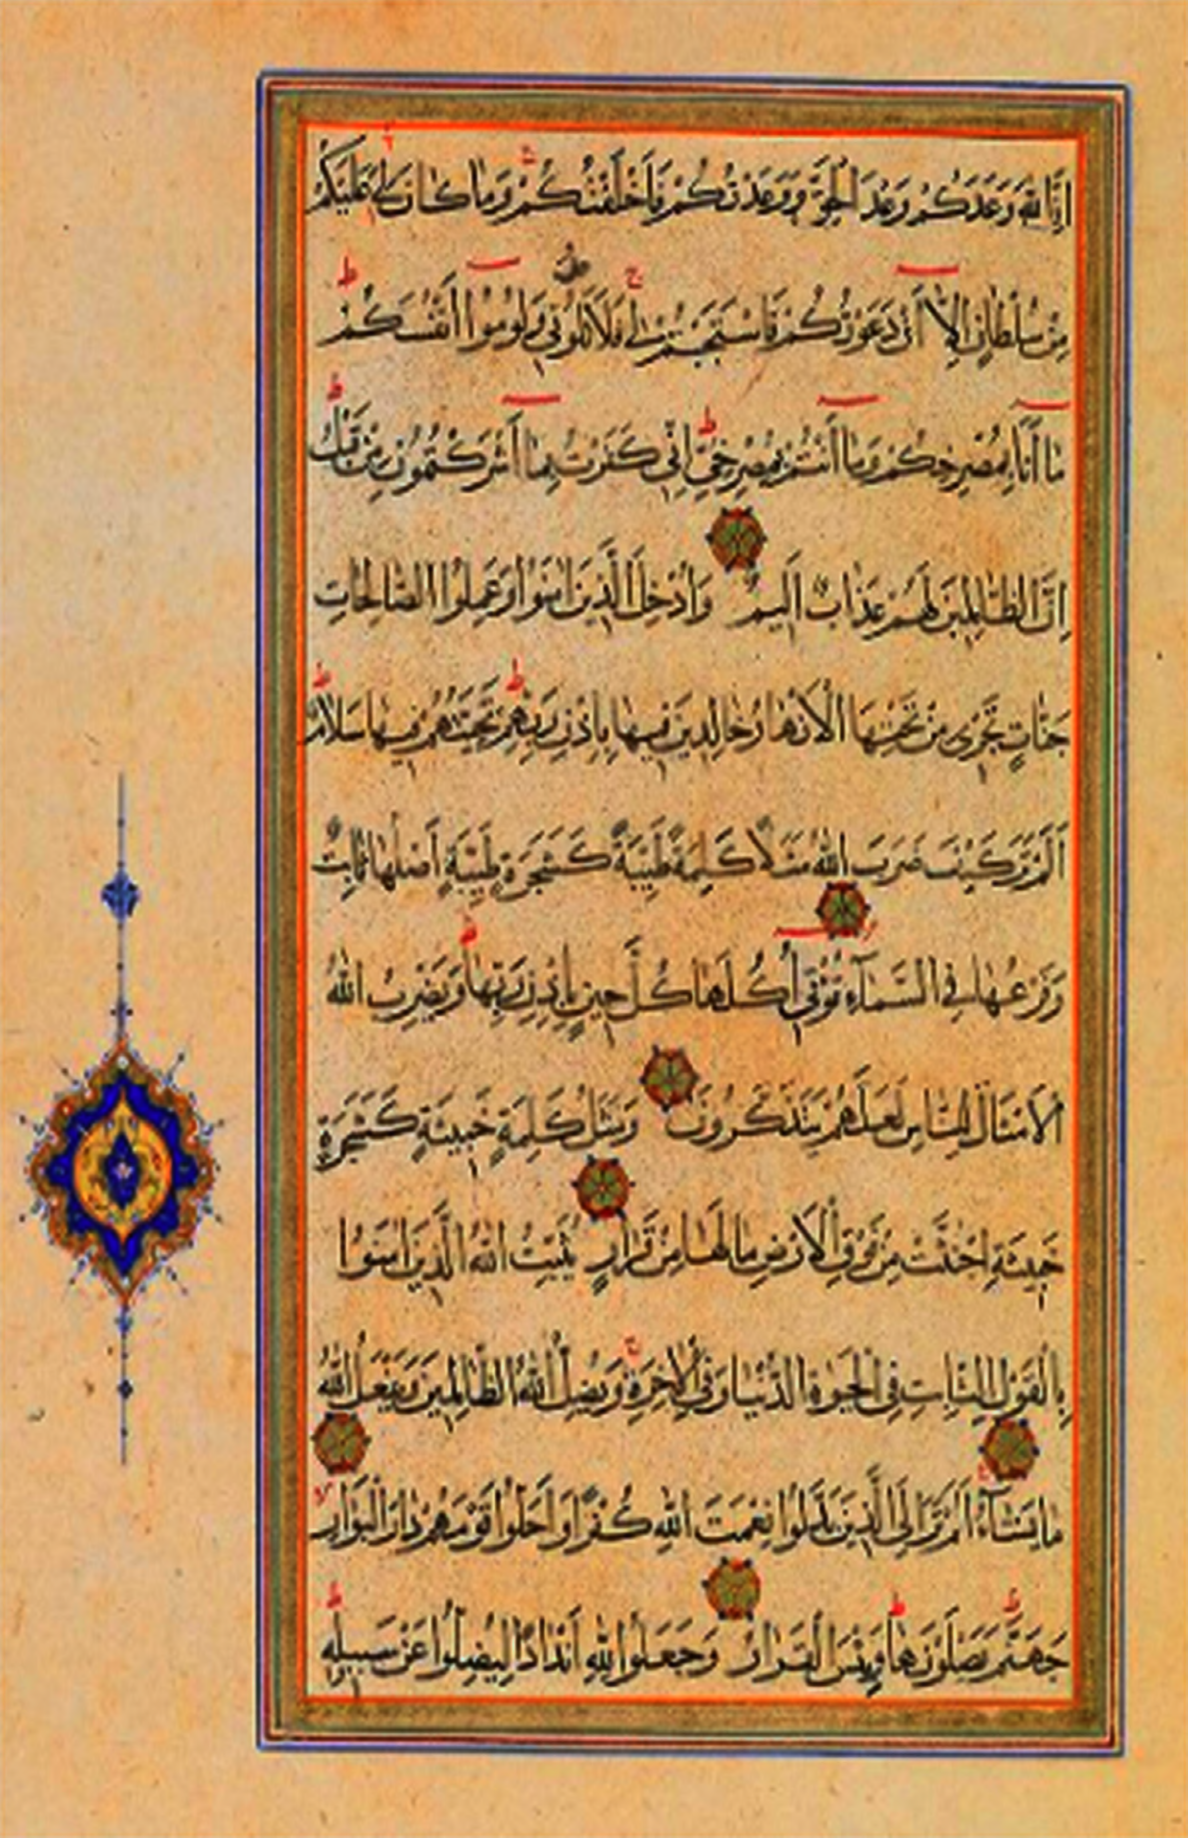 اِنَّ اللّٰهَ وَعَدَكُمْ وَعْدَ الْحَقِّ وَوَعَدْتُكُمْ فَاَخْلَفْتُكُمْ وَمَا كَانَ لِيَ عَلَيْكُمْ
مِنْ سُلْطَانٍ اِلَّا اَنْ دَعَوْتُكُمْ فَاسْتَجَبْتُمْ لِي فَلَا تَلُومُونِي وَلُومُوا اَنْفُسَكُمْ
مَا اَنَا بِمُصْرِخِكُمْ وَمَا اَنْتُمْ بِمُصْرِخِيَّ اِنِّي كَفَرْتُ بِمَا اَشْرَكْتُمُونِ مِنْ قَبْلُ
اِنَّ الظَّالِمِينَ لَهُمْ عَذَابٌ اَلِيمٌ وَاُدْخِلَ الَّذِينَ اٰمَنُوا وَعَمِلُوا الصَّالِحَاتِ
جَنَّاتٍ تَجْرِى مِنْ تَحْتِهَا الْاَنْهَارُ خَالِدِينَ فِيهَا بِاِذْنِ رَبِّهِمْ تَحِيَّتُهُمْ فِيهَا سَلَامٌ
اَلَمْ تَرَ كَيْفَ ضَرَبَ اللّٰهُ مَثَلًا كَلِمَةً طَيِّبَةً كَشَجَرَةٍ طَيِّبَةٍ اَصْلُهَا ثَابِتٌ
وَفَرْعُهَا فِي السَّمَآءِ تُؤْتِي اُكُلَهَا كُلَّ حِينٍ بِاِذْنِ رَبِّهَا وَيَضْرِبُ اللّٰهُ
الْاَمْثَالَ لِلنَّاسِ لَعَلَّهُمْ يَتَذَكَّرُونَ وَمَثَلُ كَلِمَةٍ خَبِيثَةٍ كَشَجَرَةٍ
خَبِيثَةٍ اجْتُثَّتْ مِنْ فَوْقِ الْاَرْضِ مَا لَهَا مِنْ قَرَارٍ يُثَبِّتُ اللّٰهُ الَّذِينَ اٰمَنُوا
بِالْقَوْلِ الثَّابِتِ فِي الْحَيٰوةِ الدُّنْيَا وَفِي الْاٰخِرَةِ وَيُضِلُّ اللّٰهُ الظَّالِمِينَ وَيَفْعَلُ اللّٰهُ
مَا يَشَآءُ اَلَمْ تَرَ اِلَى الَّذِينَ بَدَّلُوا نِعْمَتَ اللّٰهِ كُفْرًا وَاَحَلُّوا قَوْمَهُمْ دَارَ الْبَوَارِ
جَهَنَّمَ يَصْلَوْنَهَا وَبِئْسَ الْقَرَارُ وَجَعَلُوا لِلّٰهِ اَنْدَادًا لِيُضِلُّوا عَنْ سَبِيلِهِ